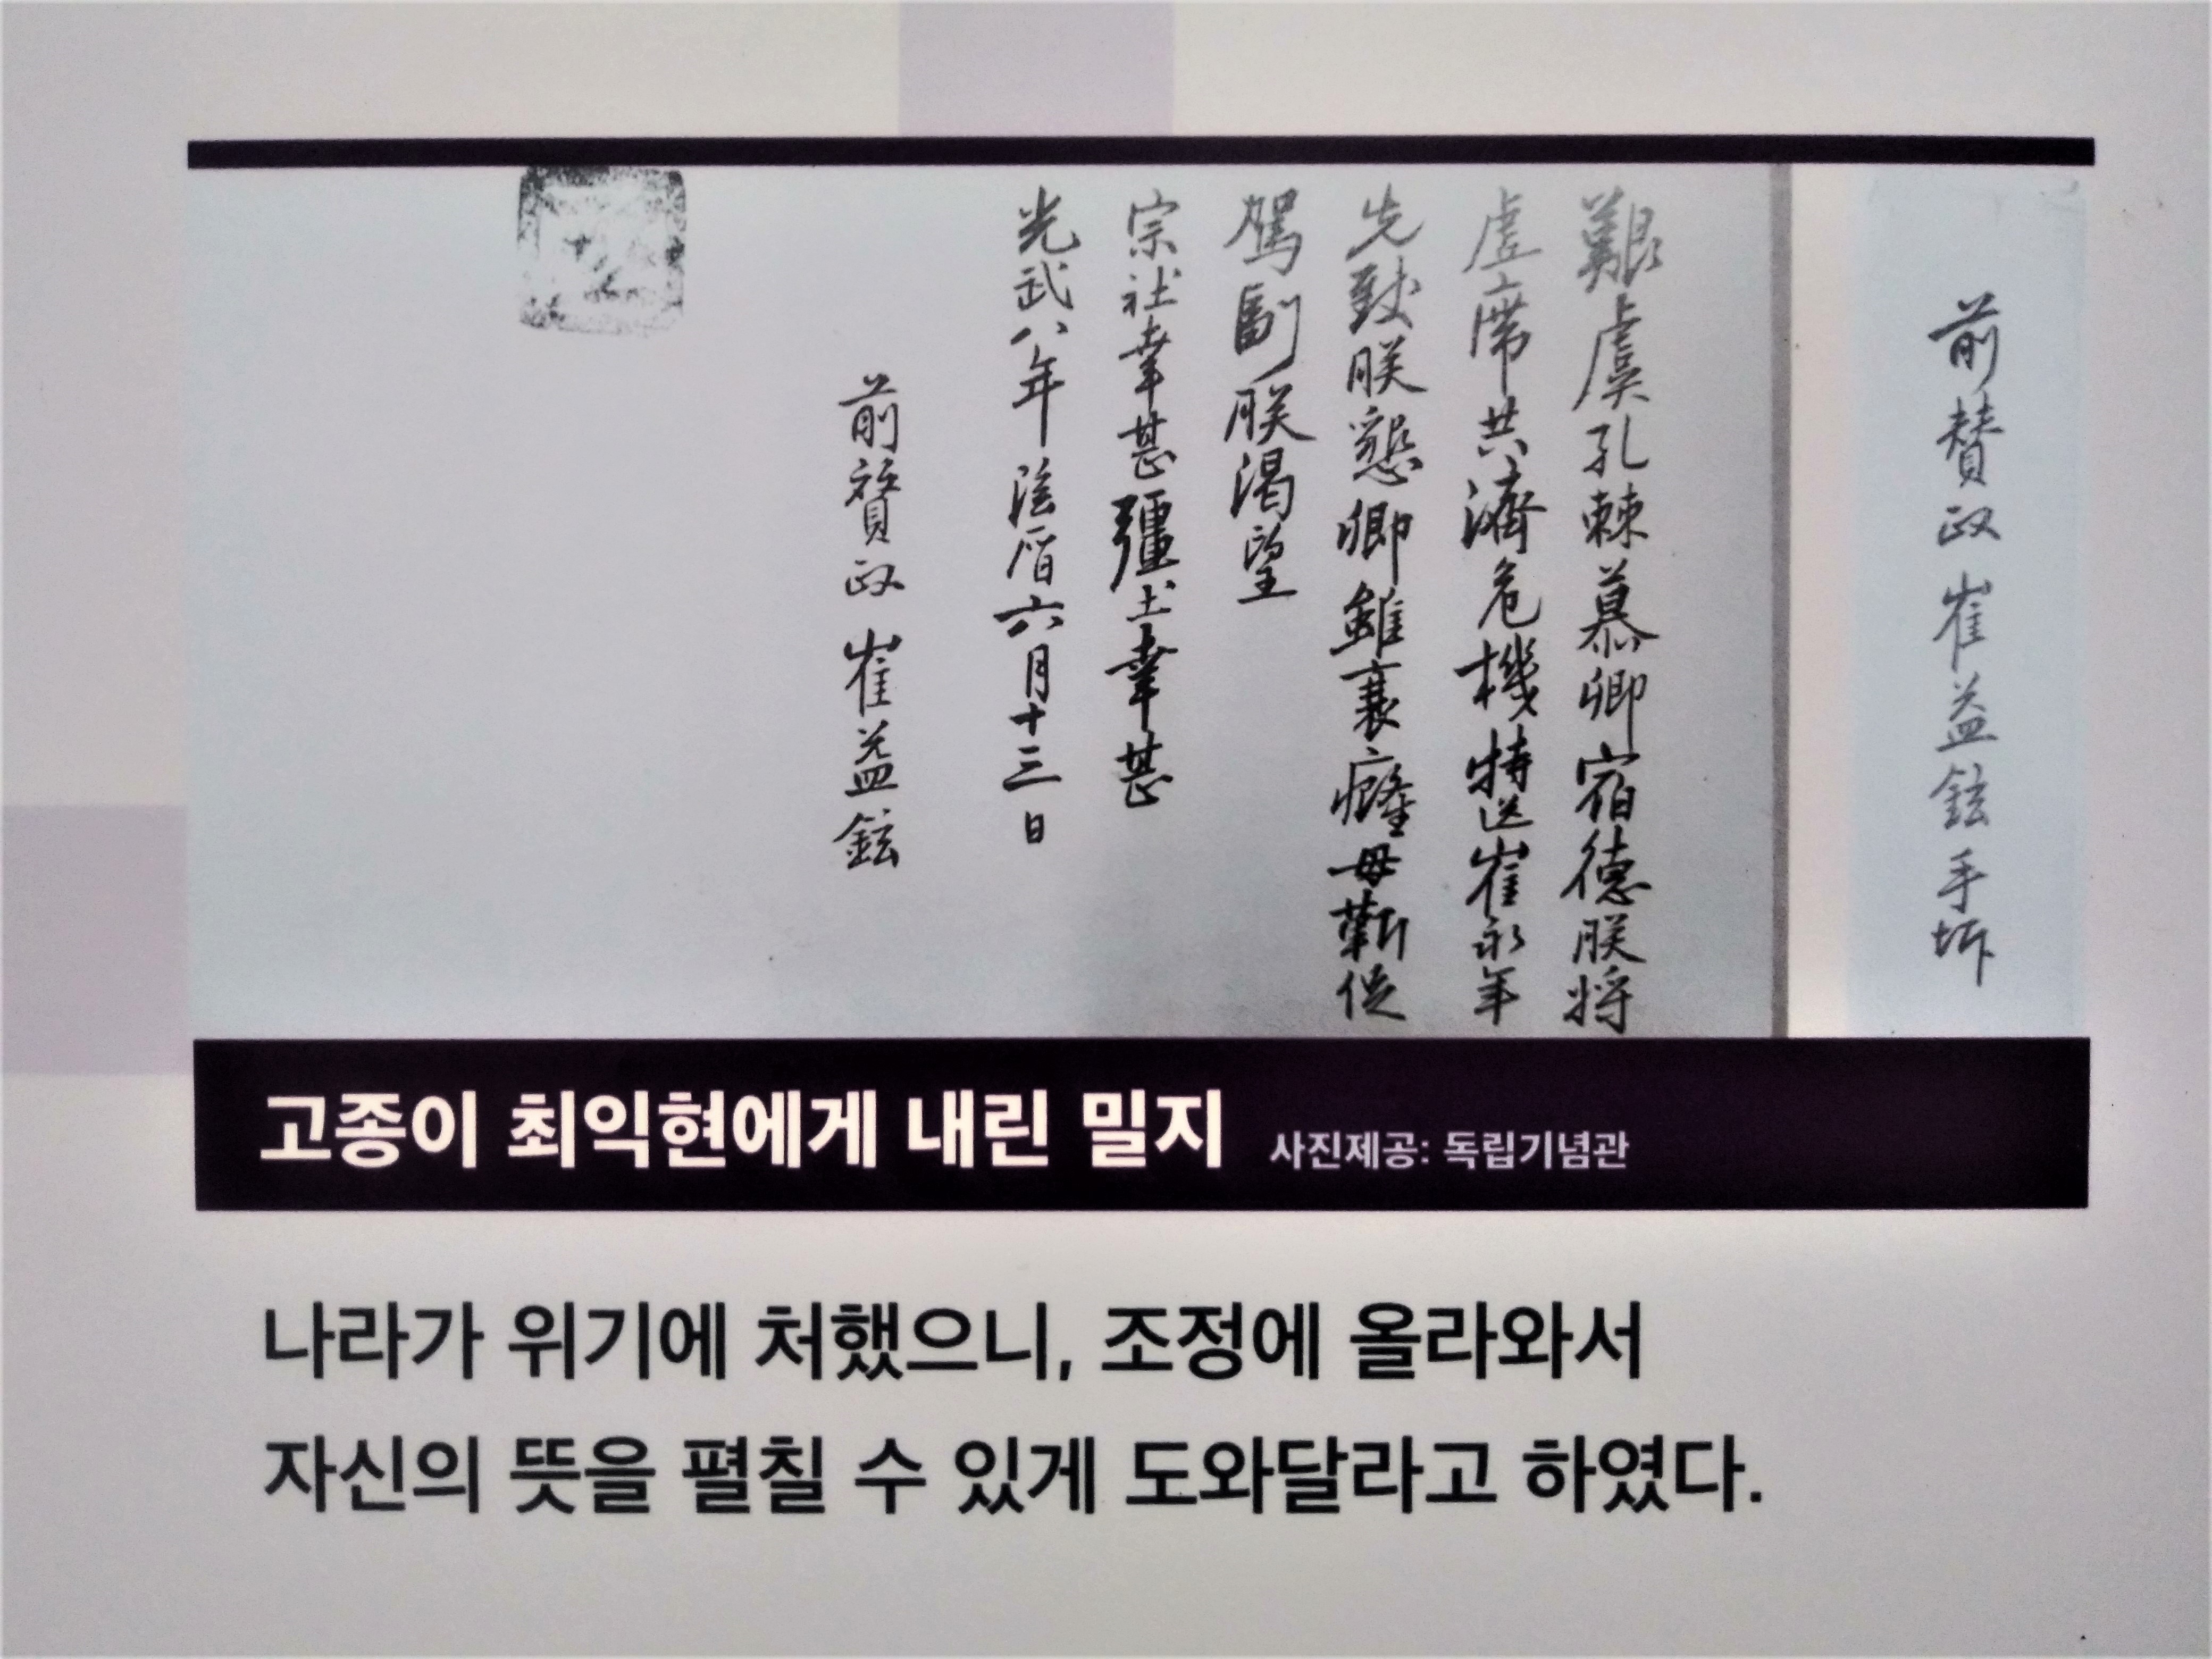 前賛政崔益鉉手坼
艱虞孔棘慕卿宿德朕將
虛席共濟危機特送崔永年
先致朕懇卿雖衰癃毋靳促
駕副朕渴望
宗社幸甚疆土幸甚
光武八年陰曆六月十三日
前贊政崔益鉉
고종이 최익현에게 내린 밀지 사진제공: 독립기념관
나라가 위기에 처했으니, 조정에 올라와서
자신의 뜻을 펼칠 수 있게 도와달라고 하였다.